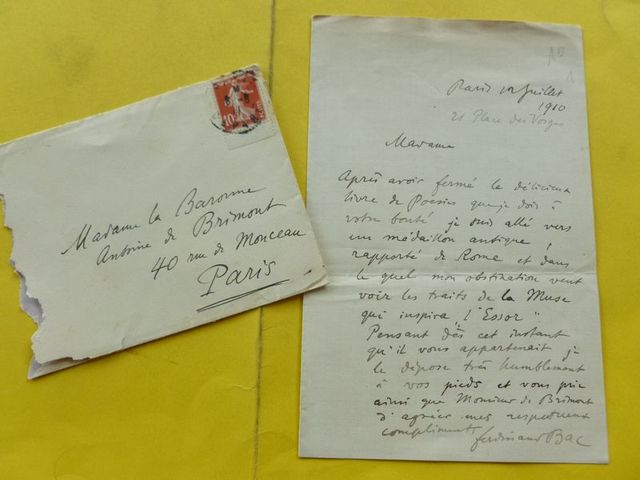 Madame la Baronne
Antoine de Brimont
40 rue de Monceau
Paris
10
Paris 1er Juillet
1910
21 Place des Vosges
Madame
Après avoir fermé le délicieux
livre de Poésies que je dois à
votre bonté je suis allé vers
un médaillon antique
rapporté de Rome et dans
le quel mon obstination veut
voir les traits de la Muse
qui inspira l'"Essor"
Pensant dès cet instant
qu'il vous appartenait je
le dépose très humblement
à vos pieds et vous prie
ainsi que Monsieur de Brimont
d'agréer mes respectueux
compliments
Ferdinand Bac